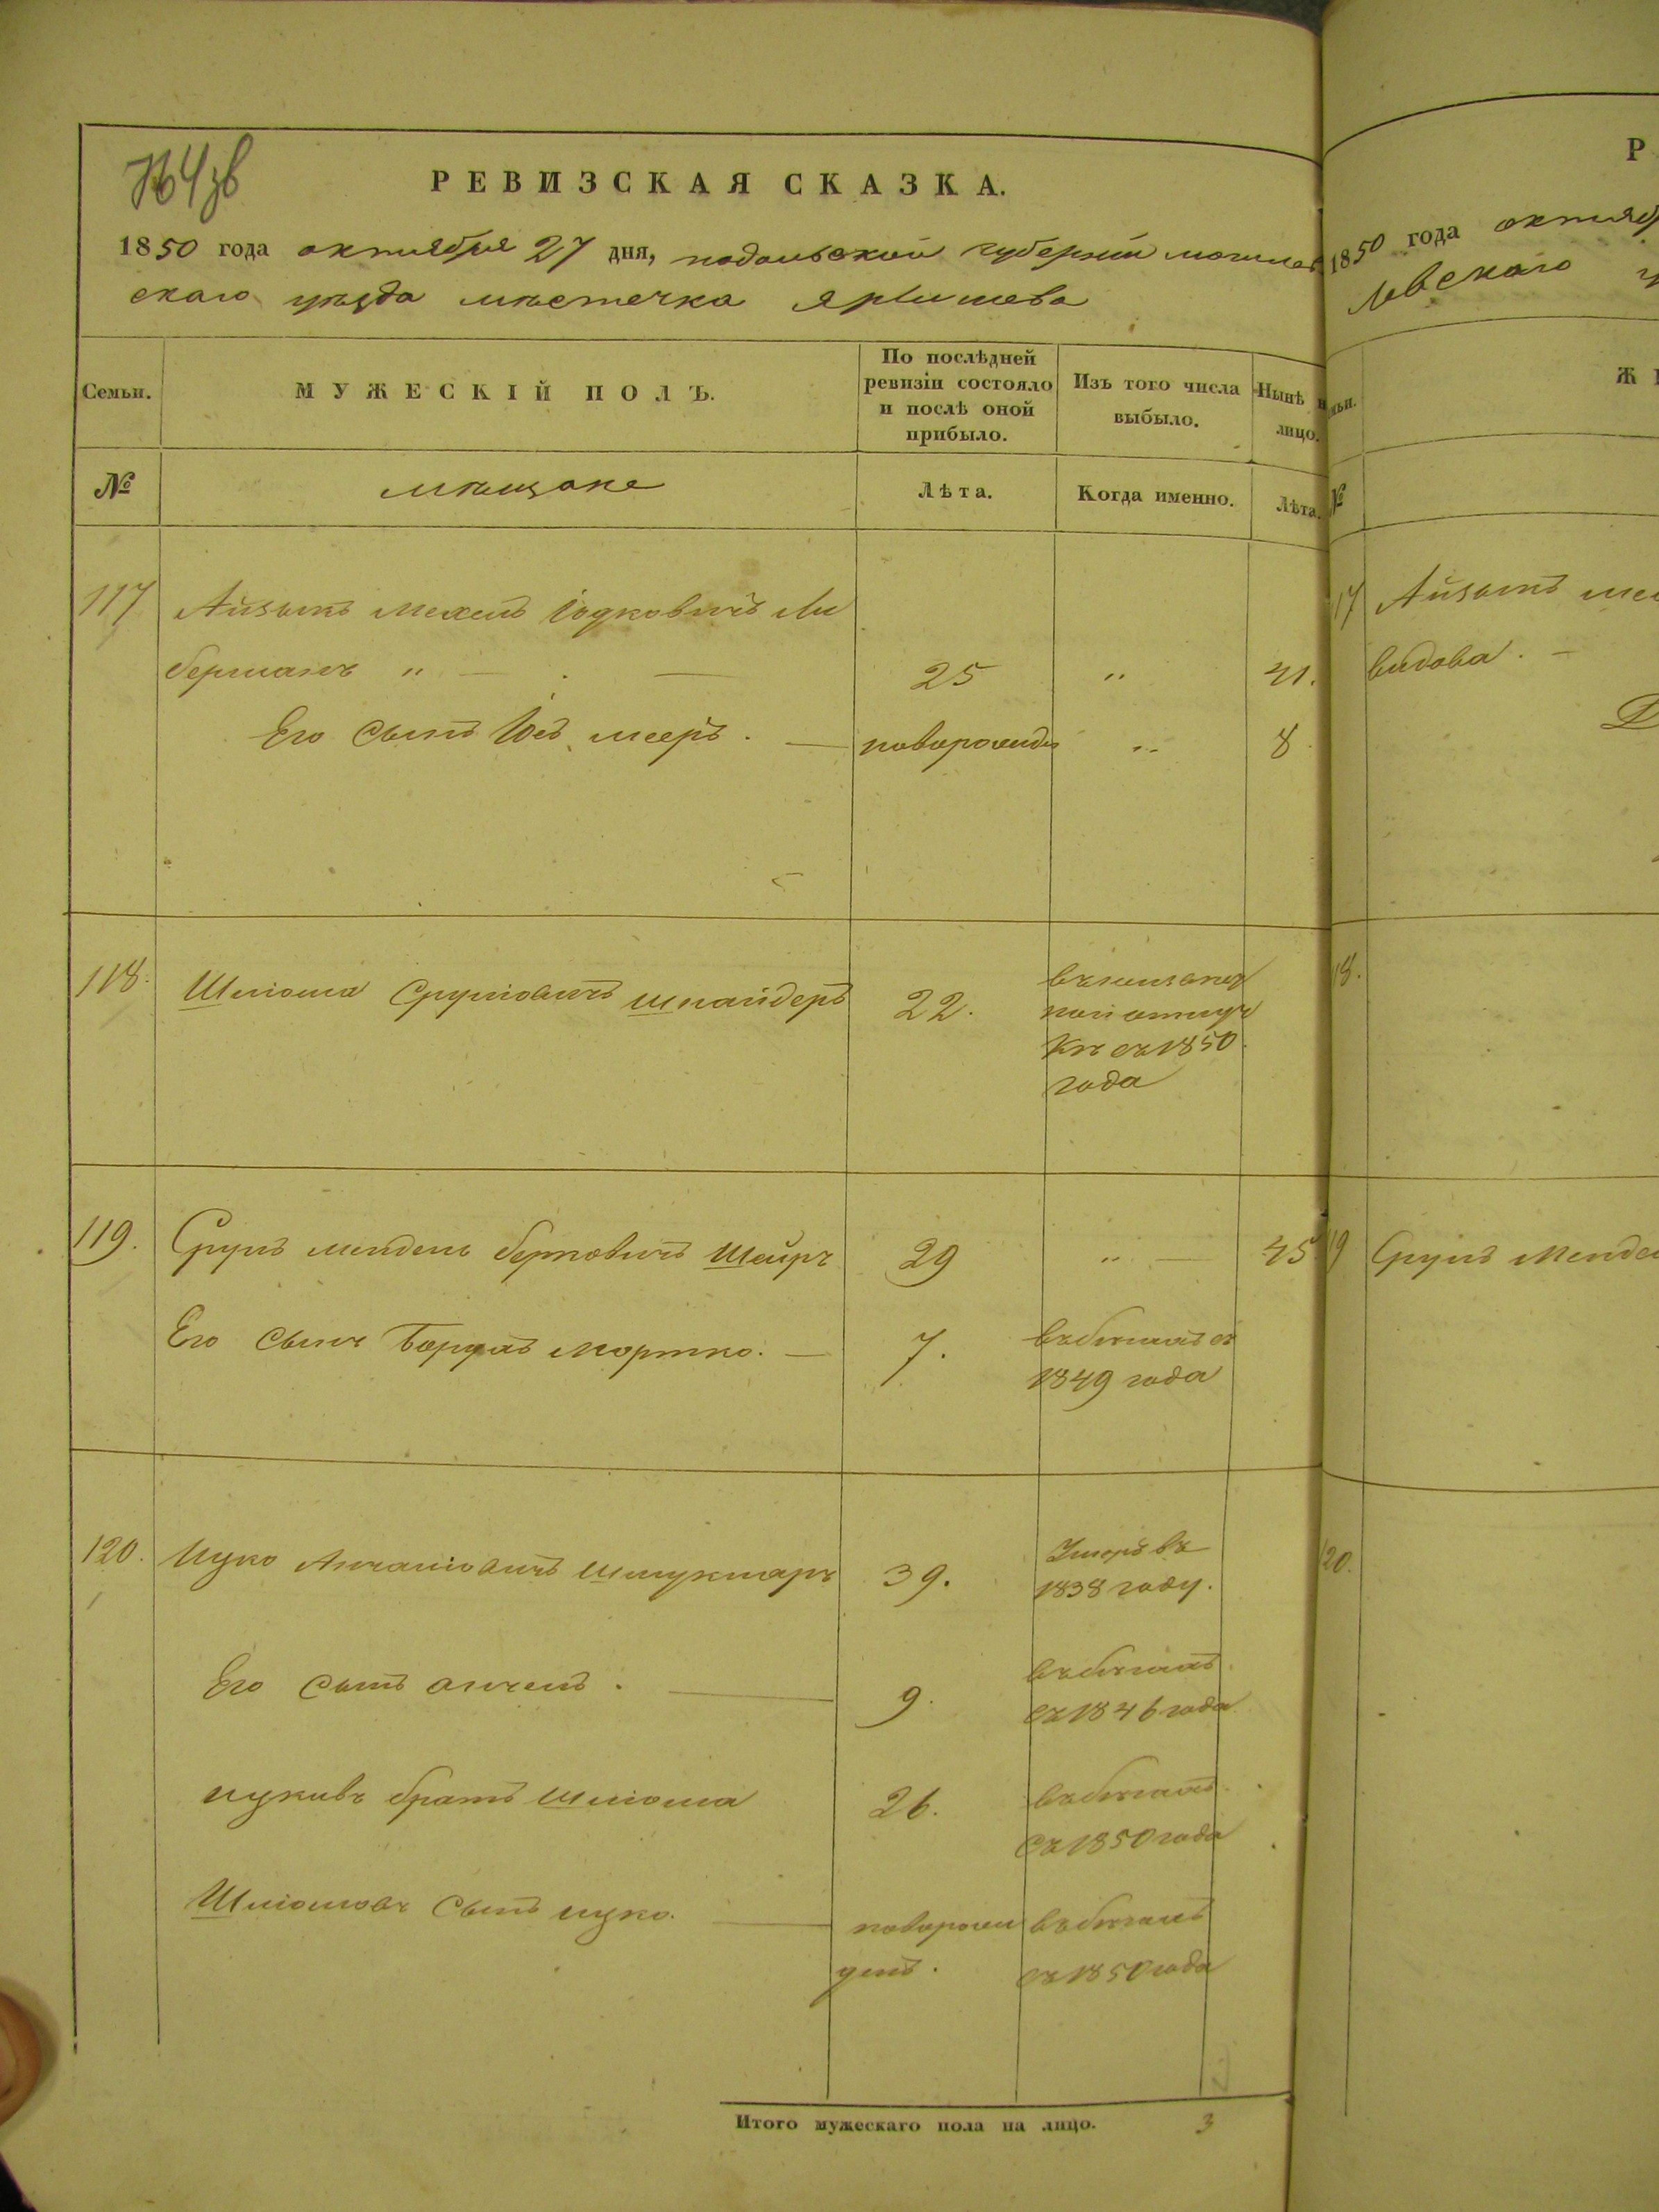 РЕВИЗСКАЯ СКАЗКА.
1850 года октября 27 дня, подольской губернии могилев
скаго уезда местечка Яришева
Семьи.
МУЖЕСКІЙ ПОЛЪ.
По послѣдней
ревизіи состояло
и послѣ оной
прибыло.
Изъ того числа
выбыло.
Нынѣ н
лицо.
№
мѣщане
Лѣта.
Когда именно.
Лѣта.
117 Айзикъ Мехель Іодковичъ Ли
берманъ " — . — 25 " 41.
Его сынъ Іос мееръ. — новорожден " 8
118. Шлiома Сруліовичъ шнайдеръ 22.
съ 1850
года
119. Сруль мендель берковичъ Шейръ 29 " — 45
Его сынъ Борухъ мортко. — 7. въ бегахъ съ
1849 года
120. Ицко Анчеліовичъ шмуклиръ 39. Умеръ въ
1838 году.
Его сынъ анчель. — 9. въ бегахъ
съ 1846 года
ицковъ братъ шліома 26. въ бегахъ
съ 1850 года
Шліомовъ сынъ ицко. — новорож въ бегахъ
денъ. съ 1850 года
Итого мужескаго пола на лицо. 3
Р
1850 года октяб
левскаго у
мьи.
Ж
№
17 Айзикъ ме
видова. —
18.
19 Сруль Менде
20.